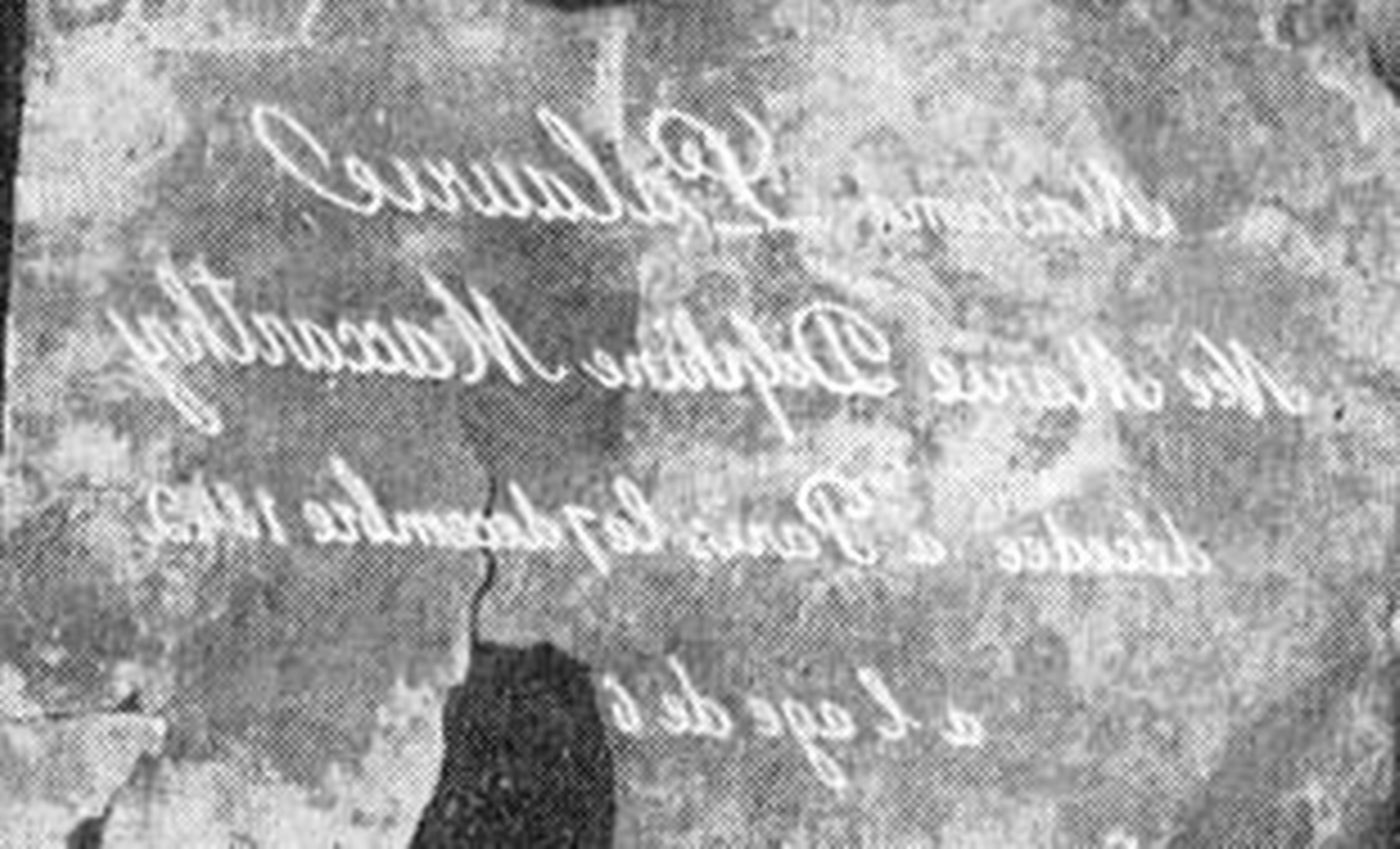 Madame Lalaurie
Nee Marie Delphine Maccarthy
décedée a Paris le 7 decembre 1842
a L age de 6